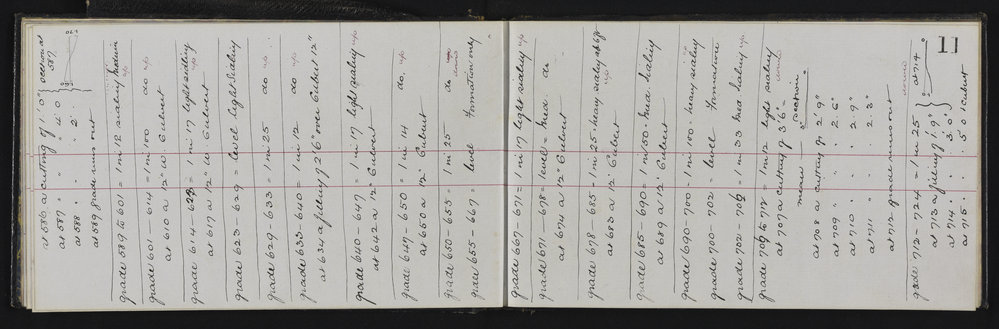 11
at 586 a cutting of 1' 0" section at 587
at 587 " " 4' 0
at 588 " " 2'
at 589 grade runs out
grade 589 to 601 = 1 in 12 sialing medium up
grade 601 - 614 = 1 in 100 do up
at 610 a 12" W Culvert
grade 614 - 623 = 1 in 17 light sialing up
at 617 a 12" W Culvert
grade 623 - 629 = level light sialing
grade 629 - 633 = 1 in 25 do up
grade 633 - 640 = 1 in 12 do up
at 634 a filling of 2' 6" over Culvert 12"
grade 640 - 647 = 1 in 17 light sialing up
at 642 a 12" Culvert
grade 647 - 650 = 1 in 14 do. up
at 650 a 12" Culvert
grade 650 - 655 = 1 in 25 do up down
grade 655 - 667 = level Formation only
grade 667 - 671 = 1 in 17 light sialing up
grade 671 - 678 = level med. do
at 674 a 12" Culvert
grade 678 - 685 - 1 in 25 heavy sialing up
at 683 a 12" Culvert
grade 685 - 690 = 1 in 50 med. sialing
at 689 a 12" Culvert
grade 690 - 700 - 1 in 100. heavy sialing up
grade 700 - 702 - level Formation
grade 702 - 709 = 1 in 33 med sialing up
grade 709 to 712 = 1 in 12 light sialing down
at 707 a cutting of 3' 6"
section
at 708 a cutting of 2' 9"
at 709 " " 2' 6"
at 710 " " 2' 9"
at 711 " " 2' 3"
at 712 grade runs out
grade 712 - 724 = 1 in 25 down
at 713 a filling of 1' 9" at 714
at 714 " 3' 0"
at 715 " 5' 0" culvert